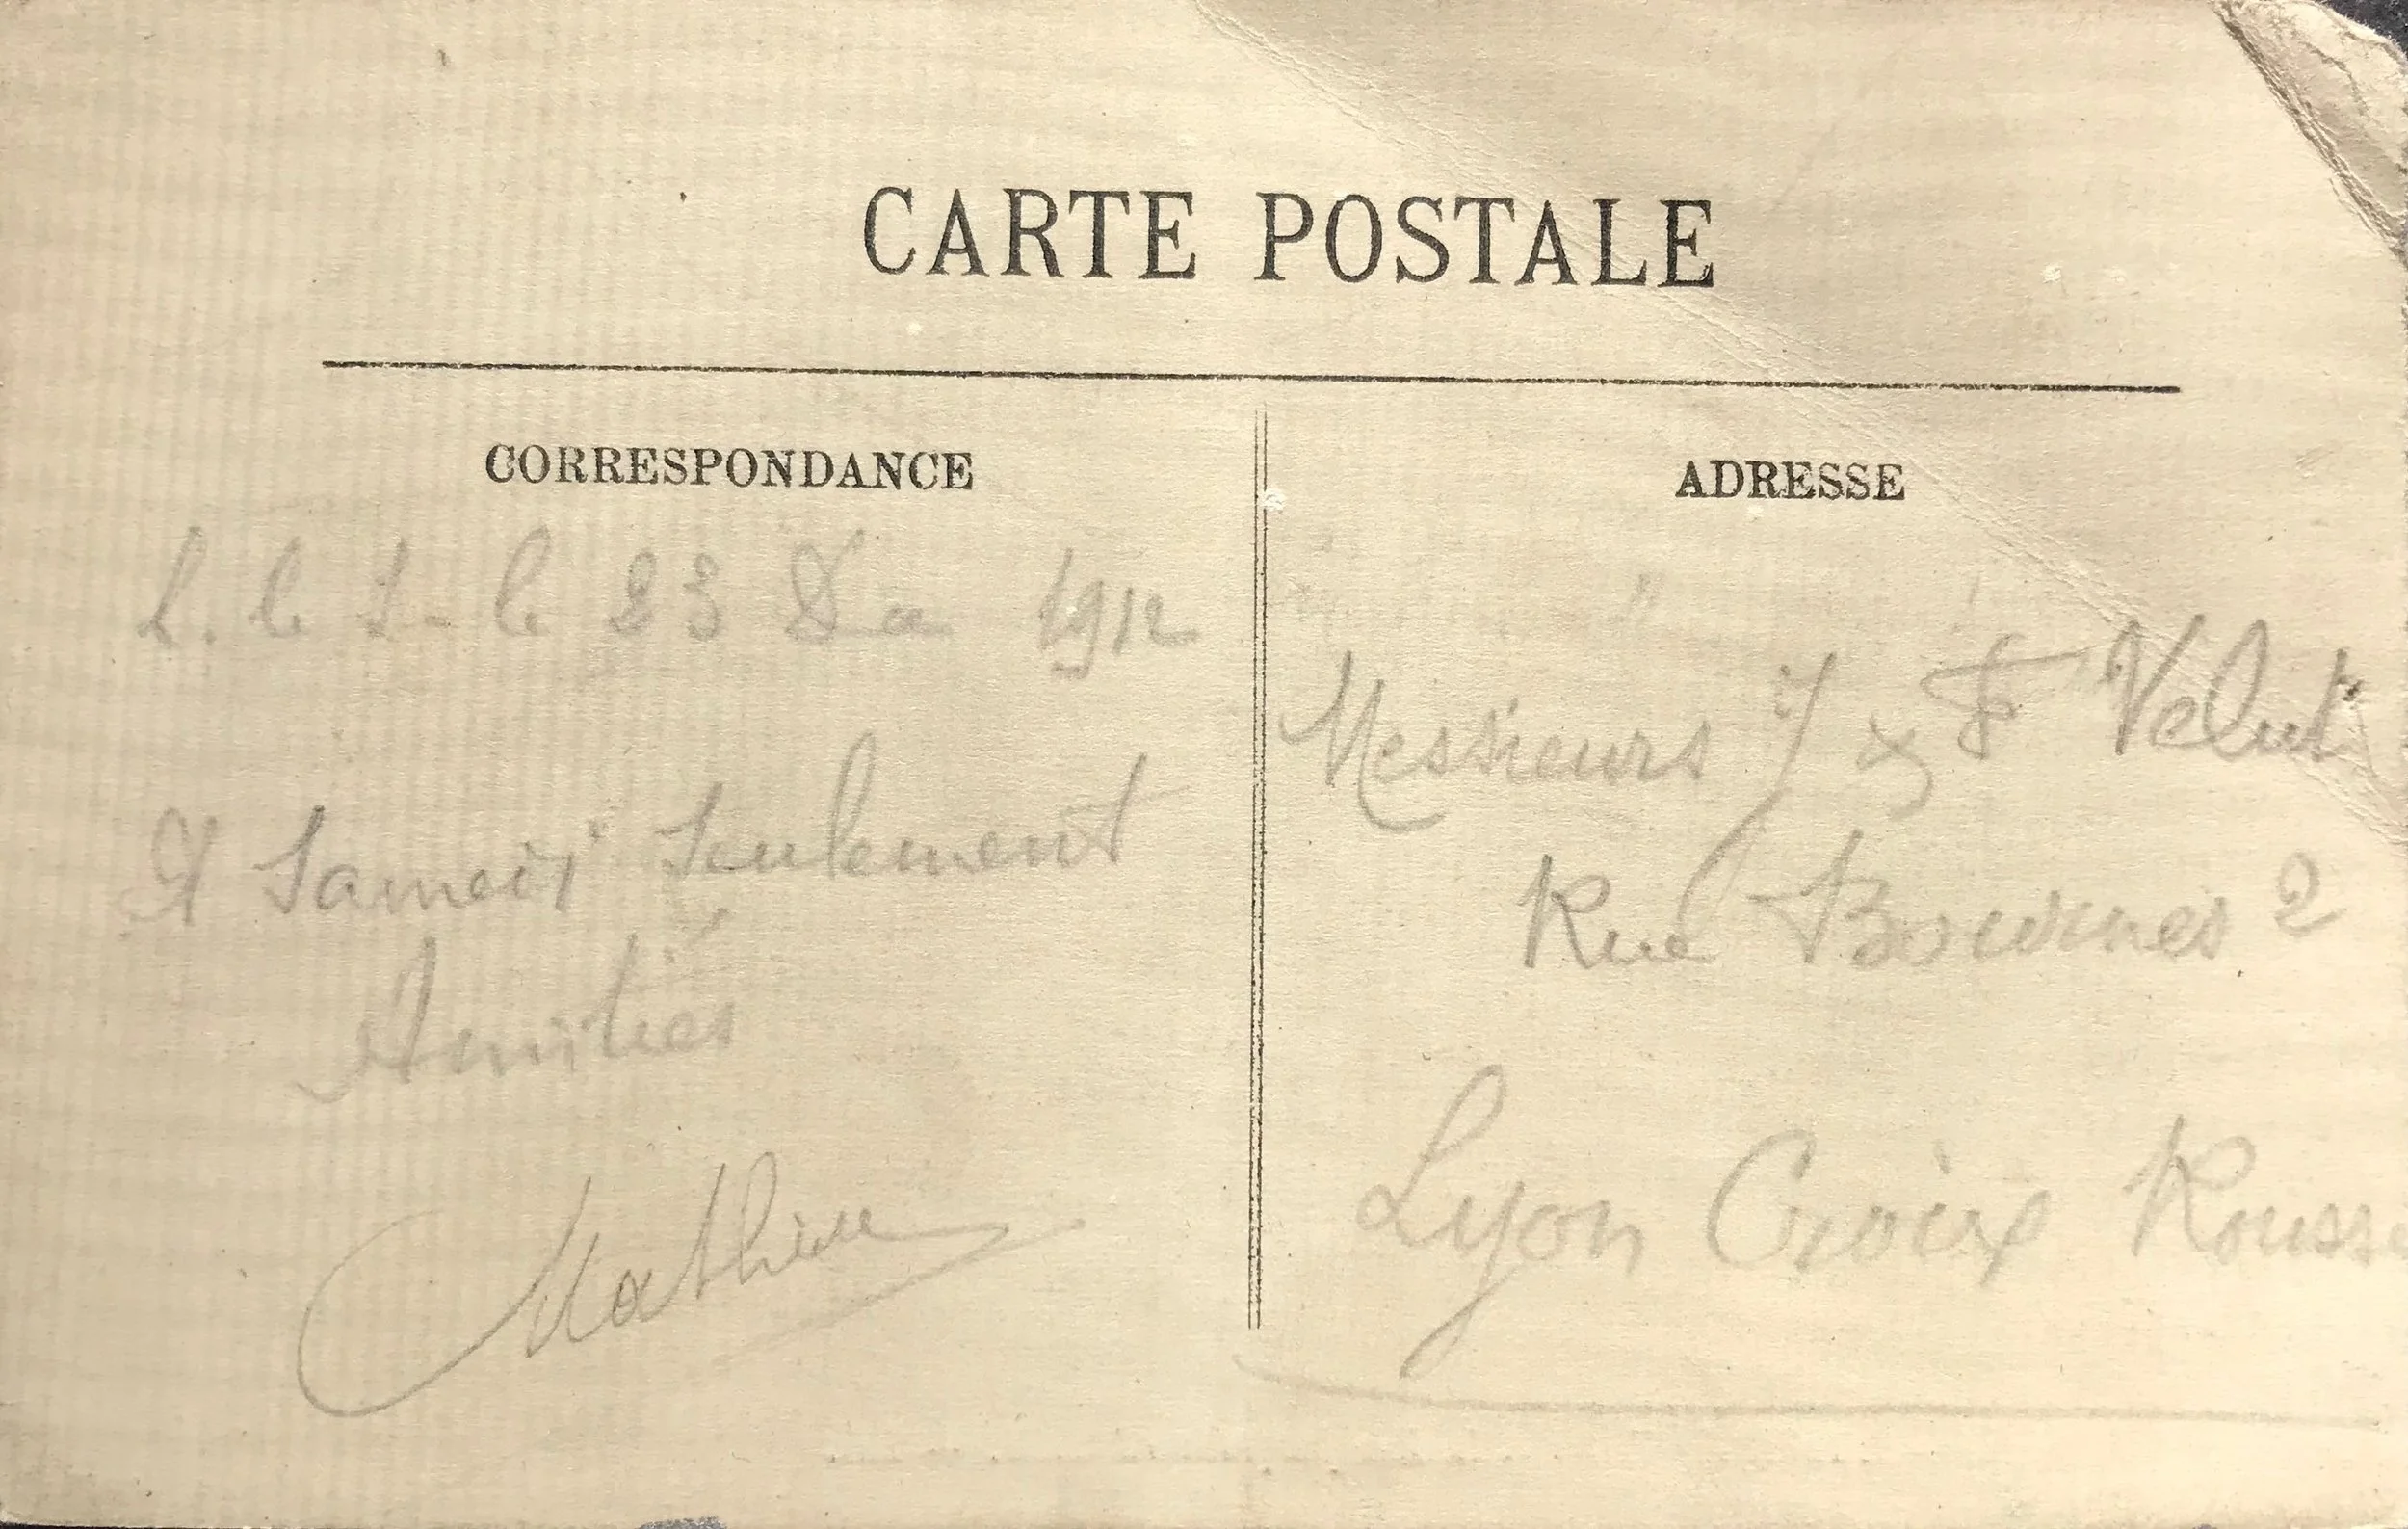 CARTE POSTALE
CORRESPONDANCE
ADRESSE
L. le S - le 23 1912
A Samedi Seulement
Amitiés
Mathieu
Messieurs J & F Velut
Rue 2
Lyon Croix Rousse